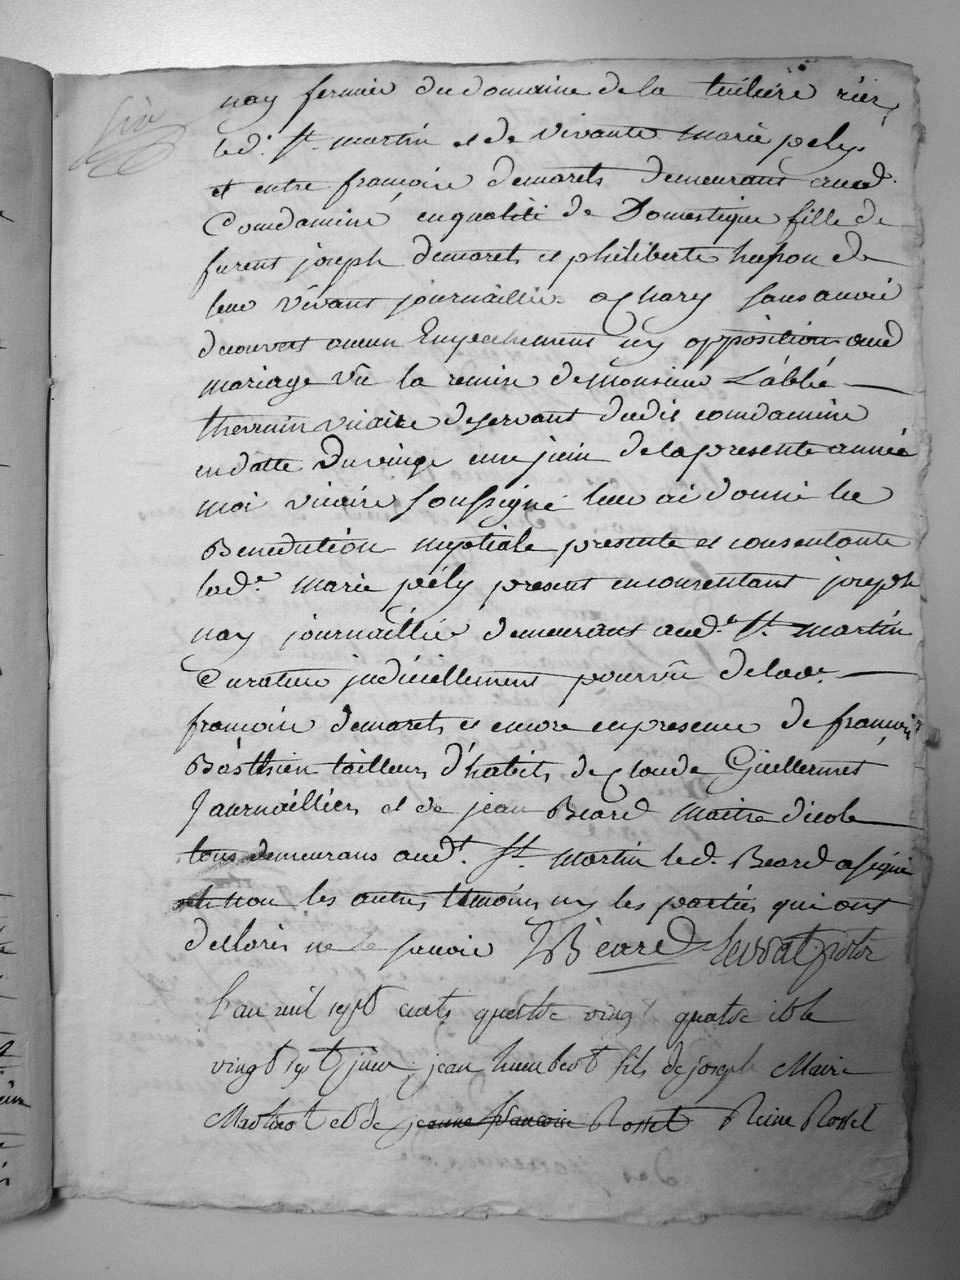 nay fermier du domaine de la tuiliere rier
led. St. martin et de vivante marie pely
et entre francoise demarets demeurant aud.
Condamine en qualité de Domestique fille de
furent joseph demarets et philiberte husson de
leur vivant journaillier a Chary sans avoir
decouvert aucun Empechement ny opposition aud
mariage vu la remise de monsieur L'abbé
thevenin vicaire deservant dudit condamine
en datte du vingt une juin de la presente année
moi vicaire soussigné leur ai donné la
Benediction nuptiale presente et consentante
lad.e marie pély present en consentant joseph
nay journaillié demeurant aud.t St. martin
Curateur judiciellement pourvu de lad.e
francoise demarets et encore en presence de francois
Bâsthien tailleur d'habits de Claude Guillermet
Journaillier et de jean Beard maitre d'ecole
tous demeurans aud.t St. martin led. Beard a signé
et non les autres témoins ny les parties qui ont
declaré ne le savoir J Beard
l'an mil sept cents quatre vingt quatre et le
vingt sept juin jean humbert fils de joseph Marie
Mathieot et de jeanne francoise Rosset Reine Rosset